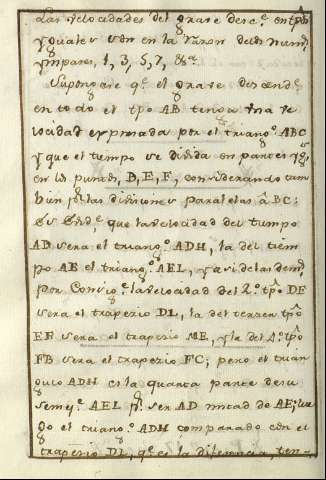 Las velocidades del grave dese.e en tpõs
yguales son en la razon de los num.s
ympares, 1, 3, 5, 7, &.a
Supongase q.e el grave desciende
en todo el tpõ AB tenga vna ve
locidad expresada por el triang.o ABC
y que el tiempo se divida en partes yg.s
en los puntos, D, E, F, considerando tam
bien las divisiones paralelas á BC:
que la velocidad del tiempo
AD sera el triang.o ADH, la del tiem
po AE el triang.o AEL, y asi de las dem.s
por la velocidad del 2.o tpõ DE
sera el trapezio DL, la del tercer tpõ
EF sera el trapezio ME, y la del 4.o tpõ
FB sera el trapezio FC; pero el trian
gulo ADH es la quarta parte de su
semej.e AEL p.r ser AD mitad de AE; lue
go el triang.o ADH comparado con el
trapezio DL, q.e es la diferencia, ten-